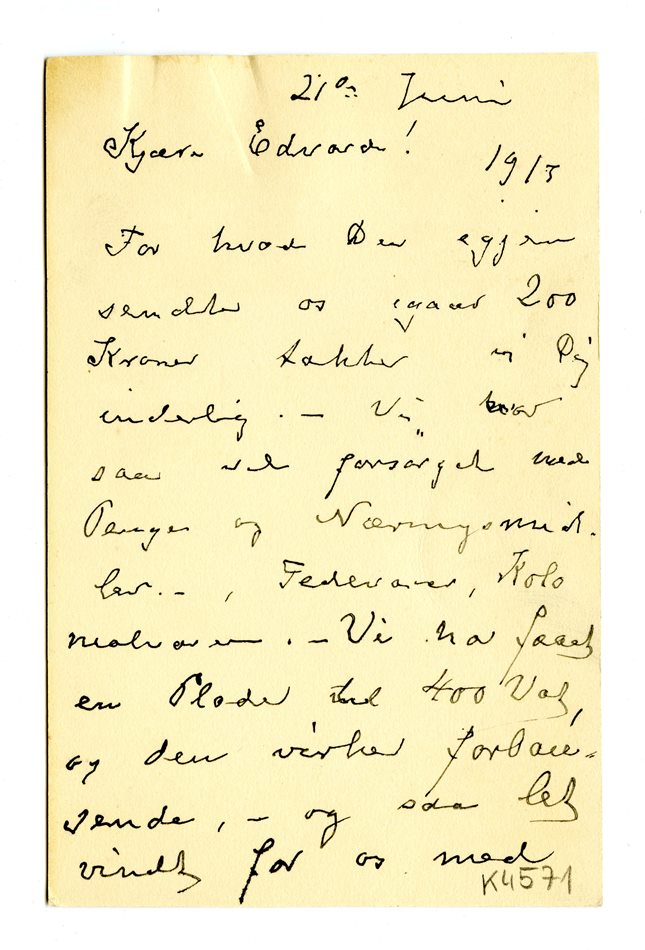 21de Juni
Kjære Edvard!
1913
For hvad Du igjen
sendte os igaar 200
Kroner takker vi Dig
inderlig. – Vi har
saa vel forsørget med
Penge og Næringsmid-
ler. – , Fedevarer, Kolo
nialvarer. – Vi har faaet
en Plade til 400 Vat,
og den virker forbau-
sende, – og saa let
vindt for os med
K4571